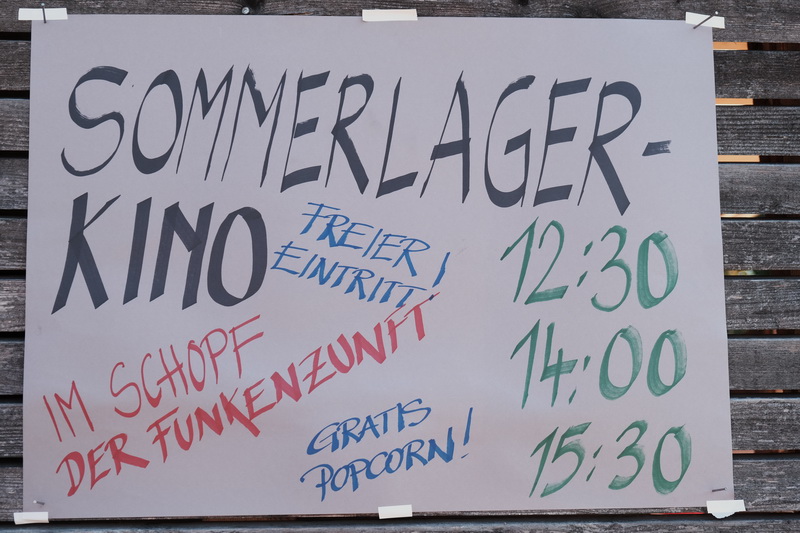 SOMMERLAGER-
KINO
FREIER
EINTRITT!
12:30
14:00
15:30
IM SCHOPF
DER FUNKENZUNFT
GRATIS
POPCORN!